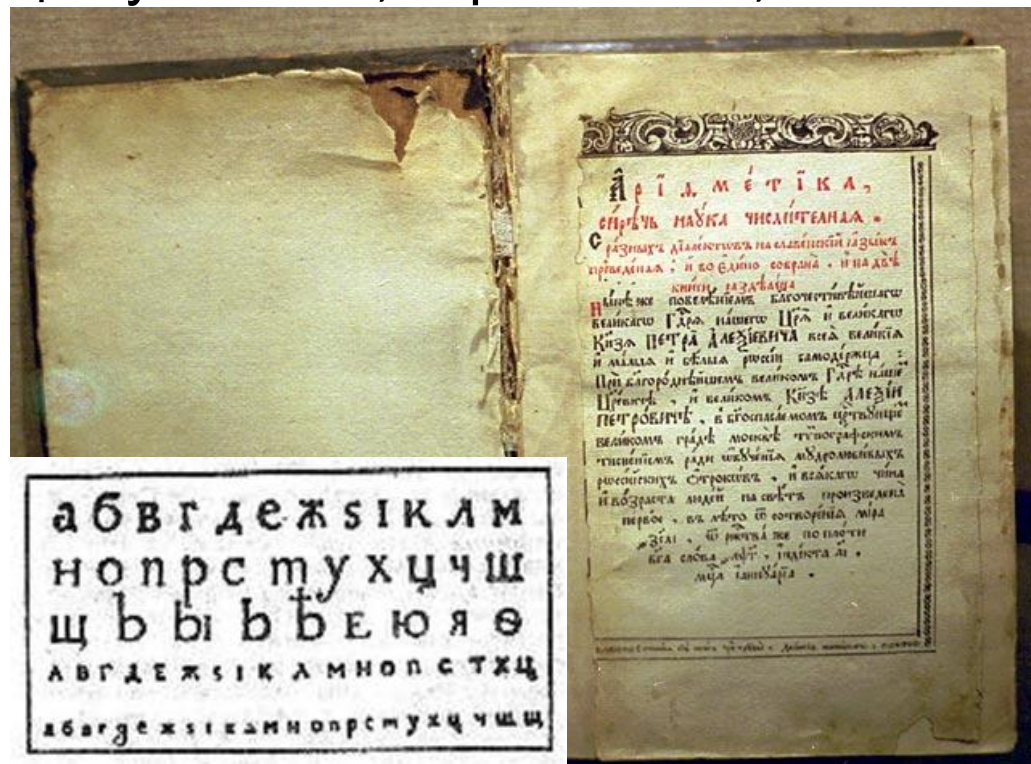 А҆рїѳме́тїка,
си́рѣчь наꙋ́ка числи́телнаѧ.
С ра́зныхъ дїале́ктѡвъ на славе́нскїй ꙗ҆зы́къ
преведе́наѧ, и҆ во є҆ди́но собрана̀. и҆ на двѣ̀
кни́ги раздѣле́на
Ны́нѣ же повелѣ́нїемъ благочести́вѣйшагѡ
вели́кагѡ Гдⷭ҇рѧ на́шегѡ Цр҃ѧ̀ и҆ вели́кагѡ
Кн҃зѧ ПЕТРА̀ А҆ЛЕѮІ́ЕВИЧА всеѧ̀ вели́кїѧ
и҆ ма́лыѧ и҆ бѣ́лыѧ рѡссі́и самоде́ржца:
Прѝ благоро́днѣйшемъ вели́комъ Гдⷭ҇рѣ на́шемъ
Цр҃е́вичѣ, и҆ вели́комъ Кн҃зѣ А҆ЛЕѮІ́И
ПЕТРО́ВИЧѢ, в бг҃оспаса́емомъ ца́рствующемъ
вели́комъ гра́дѣ москвѣ̀ тѷпогра́фскимъ
тисне́нїемъ ра́ди ѡ҆бꙋче́нїѧ мꙋдролюби́выхъ
рѡссі́йскихъ ѻ҆́трокѡвъ, и҆ всѧ́кагѡ чи́на
и҆ во́зраста люде́й на свѣ́тъ произведена̀
пе́рвое, въ лѣ́то ѿ сотворе́нїѧ мі́ра
҂зсаі, ѿ рождⷭ҇тва̀ же по пло́ти
бг҃а сло́ва ҂аѱг, і҆ндї́кта аі
мцⷭ҇а і҆аннꙋа́рїа.
а б в г д е ж ѕ і к л м
н о п р с т у х ц ч ш
щ ъ ы ь ѣ Е ю я ѳ
А В Г Д Е Ж Ѕ І К Л М Н О П С Т Х Ц
а б в г д е ж ѕ і к л м н о п р с т у х ц ч ш щ